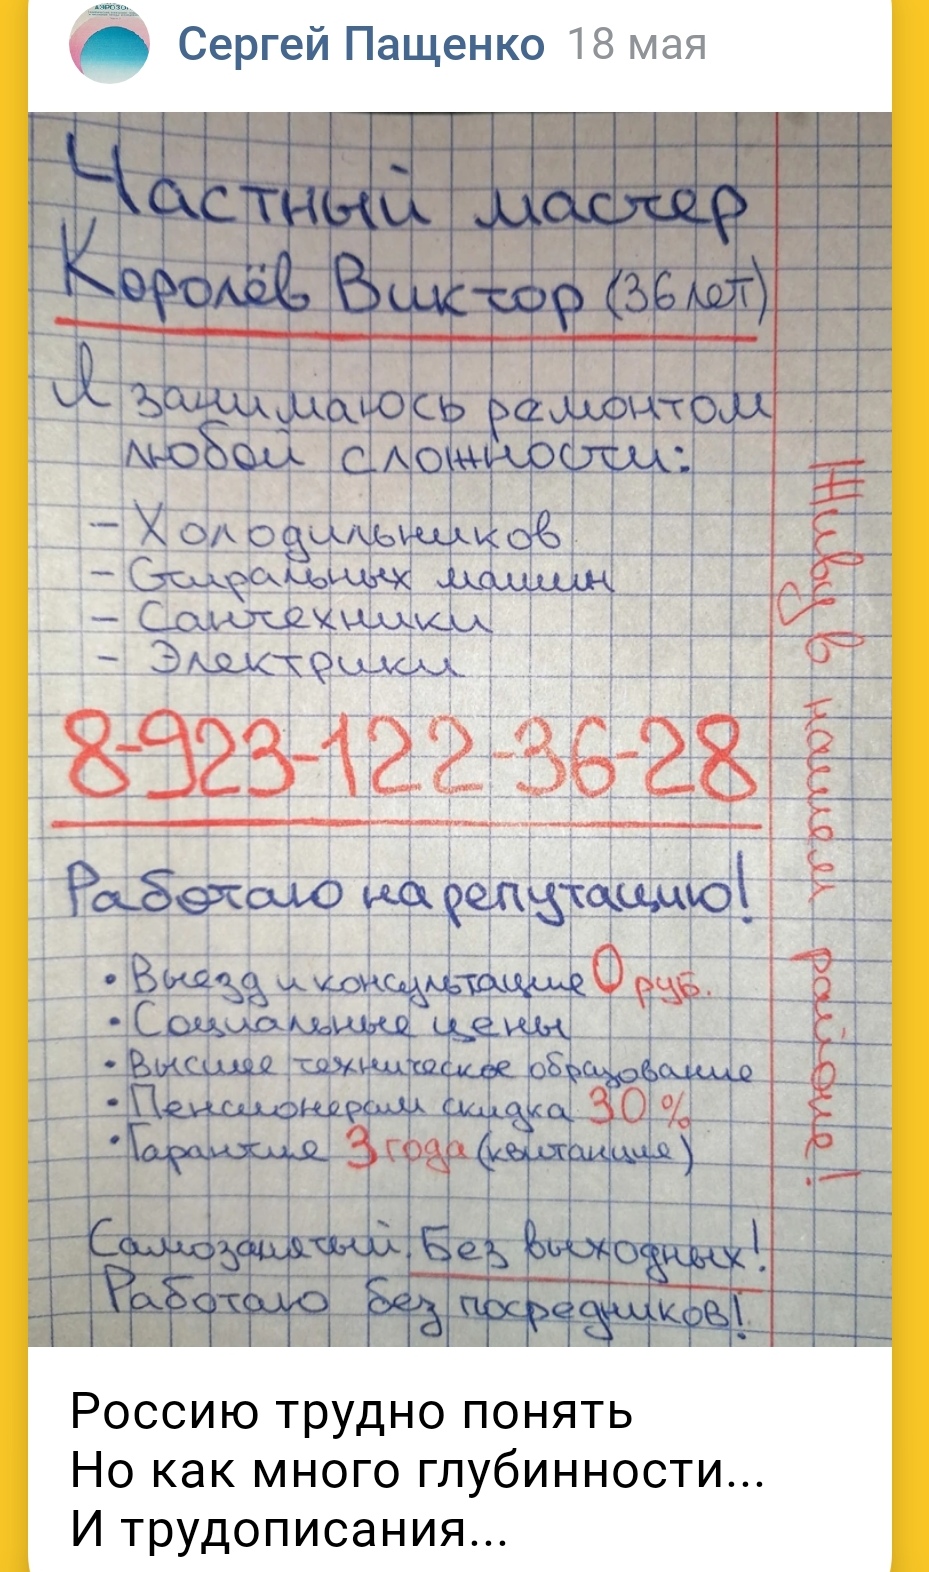 АЭРОЗОЛ
Сергей Пащенко 18 мая
Частный мастер
Королёв Виктор (36 лет)
Я занимаюсь ремонтом
любой сложности:
- Холодильников
- Стиральных машин
- Сантехники
- Электрики
8-923-122-36-28
Работаю на репутацию!
• Выезд и консультация 0 руб.
• Социальные цены
• Высшее техническое образование
• Пенсионерам скидка 30%
• Гарантия 3 года (квитанция)
Самозанятый. Без выходных!
Работаю без посредников!
Живу в нашем районе!
Россию трудно понять
Но как много глубинности...
И трудописания...